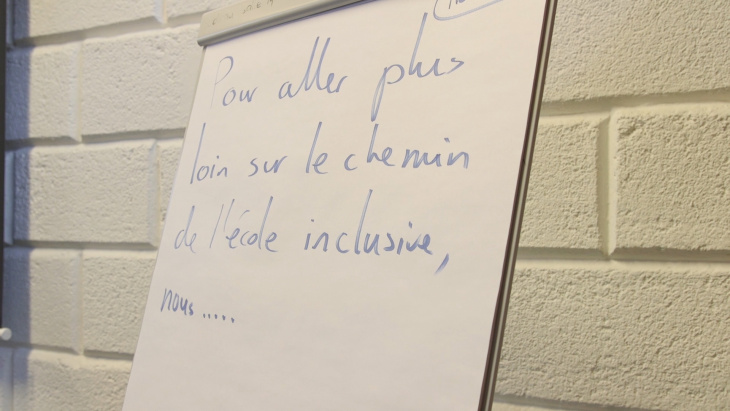 Pour aller plus
loin sur le chemin
de l'école inclusive,
nous.....